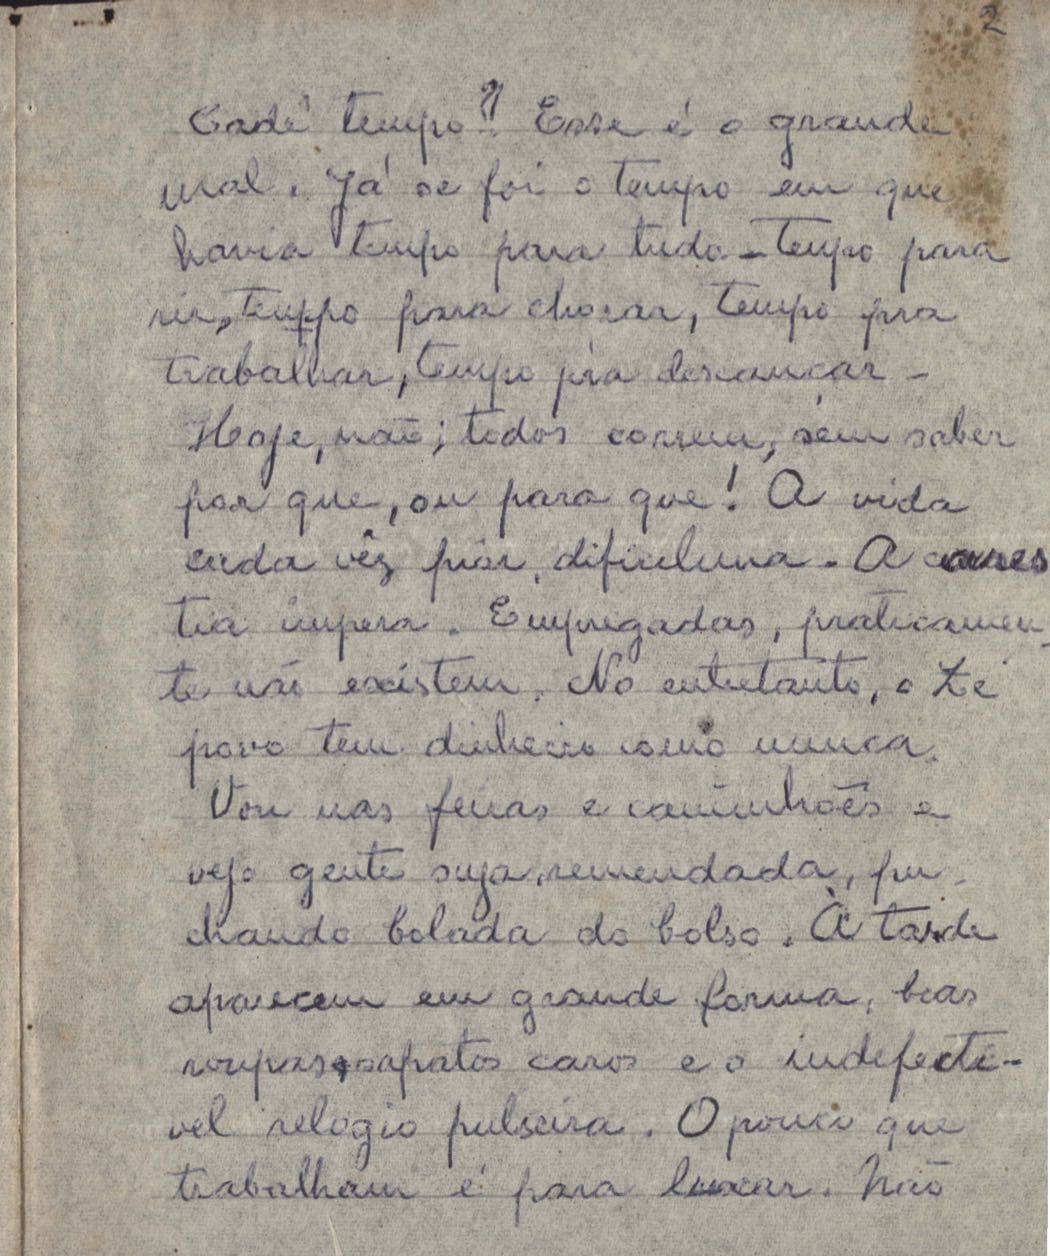 2
Cadê tempo?! Esse é o grande
mal. Já se foi o tempo em que
havia tempo para tudo - Tempo para
rir, tempo para chorar, tempo pra
trabalhar, tempo pra descançar -
Hoje, não; todos correm, sem saber
por que, ou para que! A vida
cada vês piór, dificiluna. A cares
tia impera. Empregadas, praticamen-
te não existem. No entretanto, o Zé
povo tem dinheiro como nunca.
Vou nas feiras e caminhões e
vejo gente suja, remendada, pu-
chando bolada do bolso. À tarde
aparecem em grande forma, boas
roupas, sapatos caros e o indefecti-
vel relogio pulseira. O pouco que
trabalham é para luxar. Não